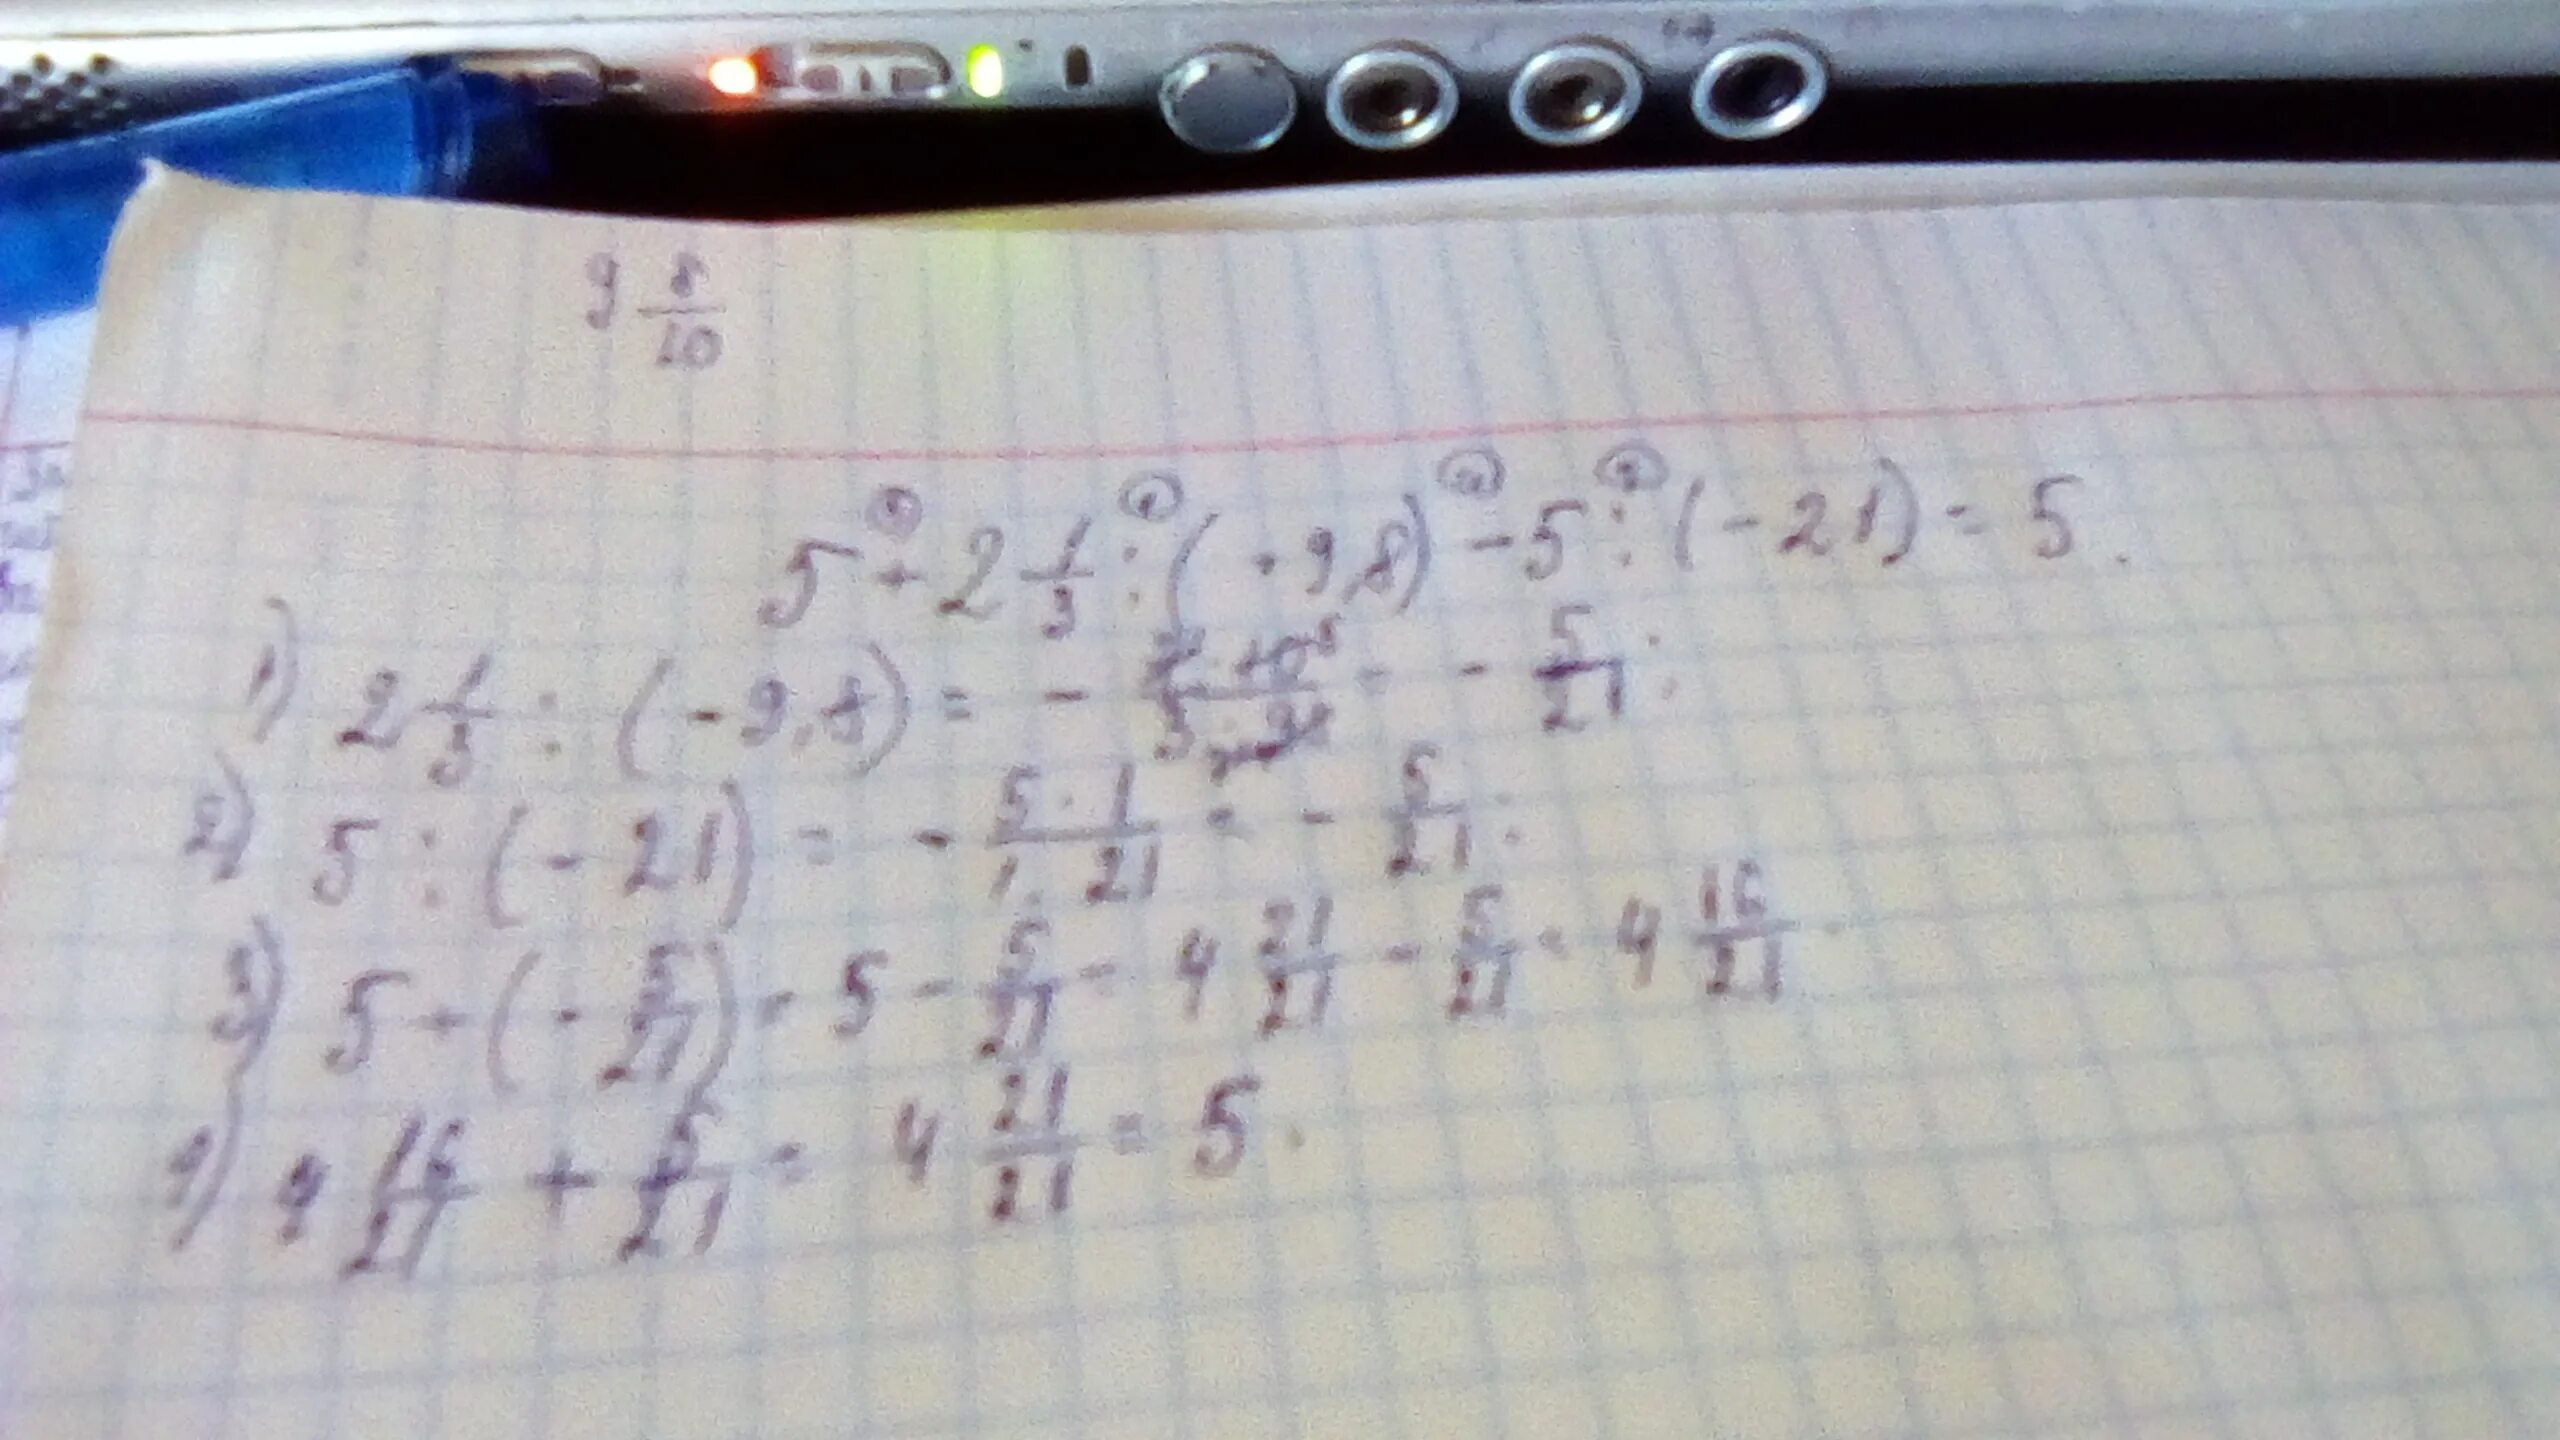 9 8/10
5 + 2 1/3 : (-9,8) - 5 : (-21) = 5.
1) 2 1/3 : (-9,8) = - = - 5/21;
2) 5 : (-21) = - 5·1/1·21 = - 5/21;
3) 5 + (- 5/21) = 5 - 5/21 = 4 21/21 - 5/21 = 4 16/21.
4) 4 16/21 + 5/21 = 4 21/21 = 5.